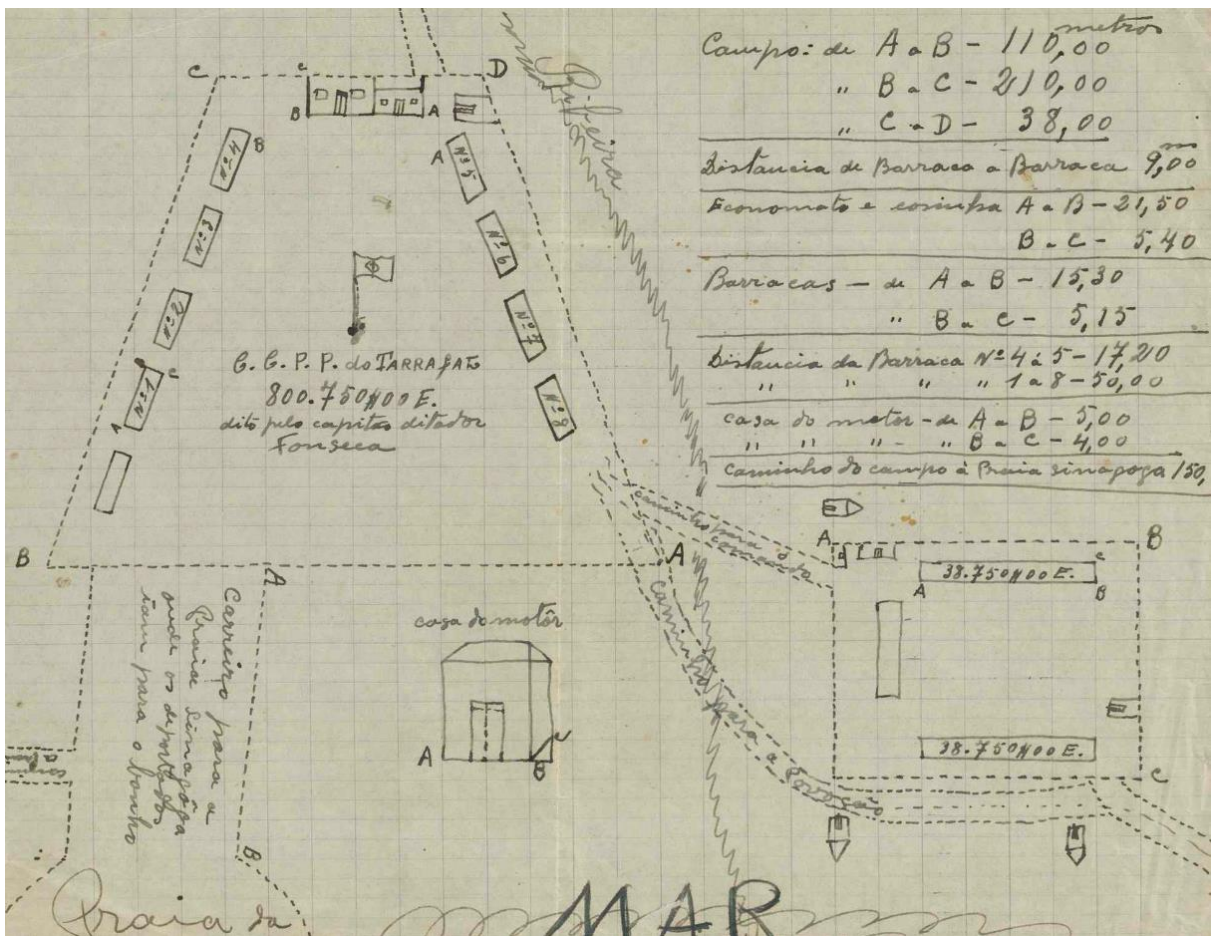 metros
Campo: de A a B - 110,00
" B a C - 210,00
" C a D - 38,00
Distancia de Barraca a Barraca 9,00 m
Economato e cosinha A a B - 21,50
B a C - 5,40
Barracas - de A a B - 15,30
" B a C - 5,15
Distancia da Barraca Nº 4 á 5 - 17,20
" " " " 1 a 8 - 50,00
casa do motor - de A a B - 5,00
" " " - " B a C - 4,00
Caminho do campo á Praia sinagoga 150,
Ribeira
C
c
D
B
A
Nº 4
B
A
Nº 5
Nº 3
Nº 6
Nº 2
Nº 7
Nº 1
Nº 8
C.C.P.P. do TARRAFAL
800.750$00 E.
dito pelo capitão ditador
Fonseca
B
A
A
caminho para o comando
caminho para a Povoação
A
B
38.750$00 E.
A
c
B
38.750$00 E.
C
casa do motôr
A
B
C
Carreiro para a
Praia Sinagôga
onde os deportados
iam para o banho
B
Praia da
MAR